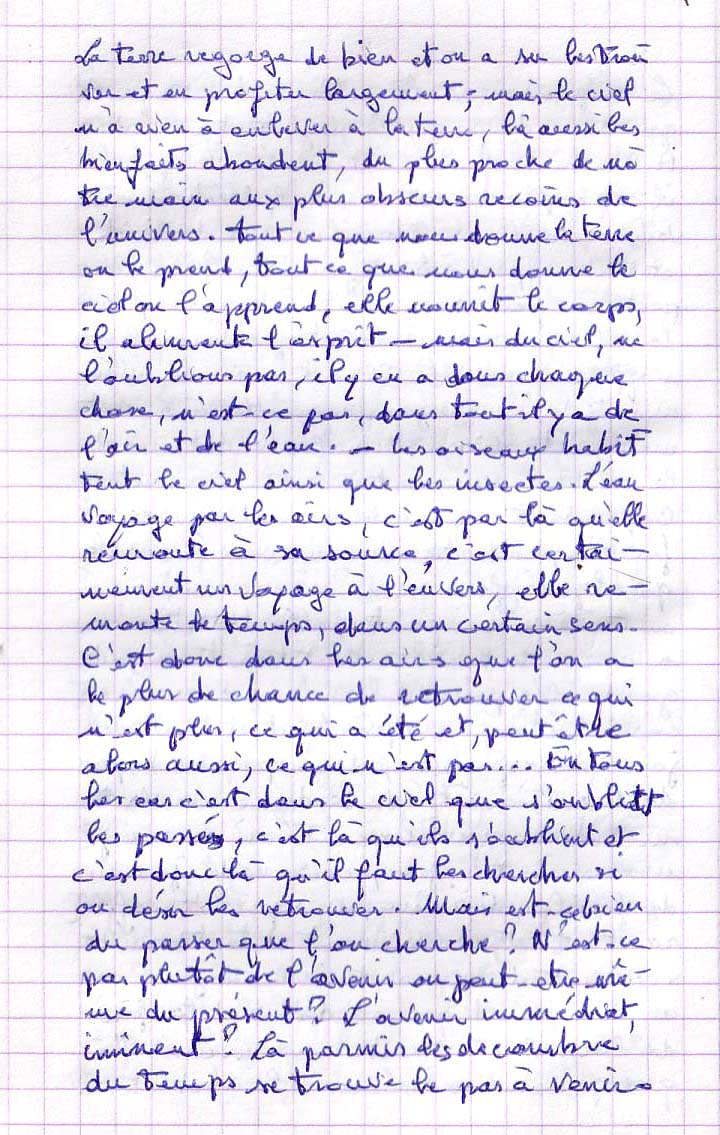 La terre regorge de bien et on a su les trou
ver et en profiter largement ; mais le ciel
n'a rien à enlever à la terre, là aussi les
bienfaits abondent, du plus proche de nô
tre main aux plus obscurs recoins de
l'univers. tout ce que nous donne la terre
on le prend, tout ce que nous donne le
ciel on l'apprend, elle nourrit le corps,
il alimente l'esprit – mais du ciel, ne
l'oublions pas, il y en a dans chaque
chose, n'est-ce pas, dans tout il y a de
l'air et de l'eau. – Les oiseaux habit
tent le ciel ainsi que les insectes. L'eau
voyage par les airs, c'est par là qu'elle
remonte à sa source, c'est certai-
nement un voyage à l'envers, elle re-
monte le temps, dans un certain sens.
C'est donc dans les airs que l'on a
le plus de chance de retrouver ce qui
n'est plus, ce qui a été et, peut être
alors aussi, ce qui n'est pas... En tous
les cas c'est dans le ciel que s'oublient
les passés, c'est là qu'ils s'oublient et
c'est donc là qu'il faut les chercher si
on désir les retrouver. Mais est-ce bien
du passer que l'on cherche ? N'est-ce
pas plutôt de l'avenir ou peut-etre mê-
me du présent ? L'avenir immédiat,
imminent ? Là parmis les decombre
du temps se trouve le pas à venir.